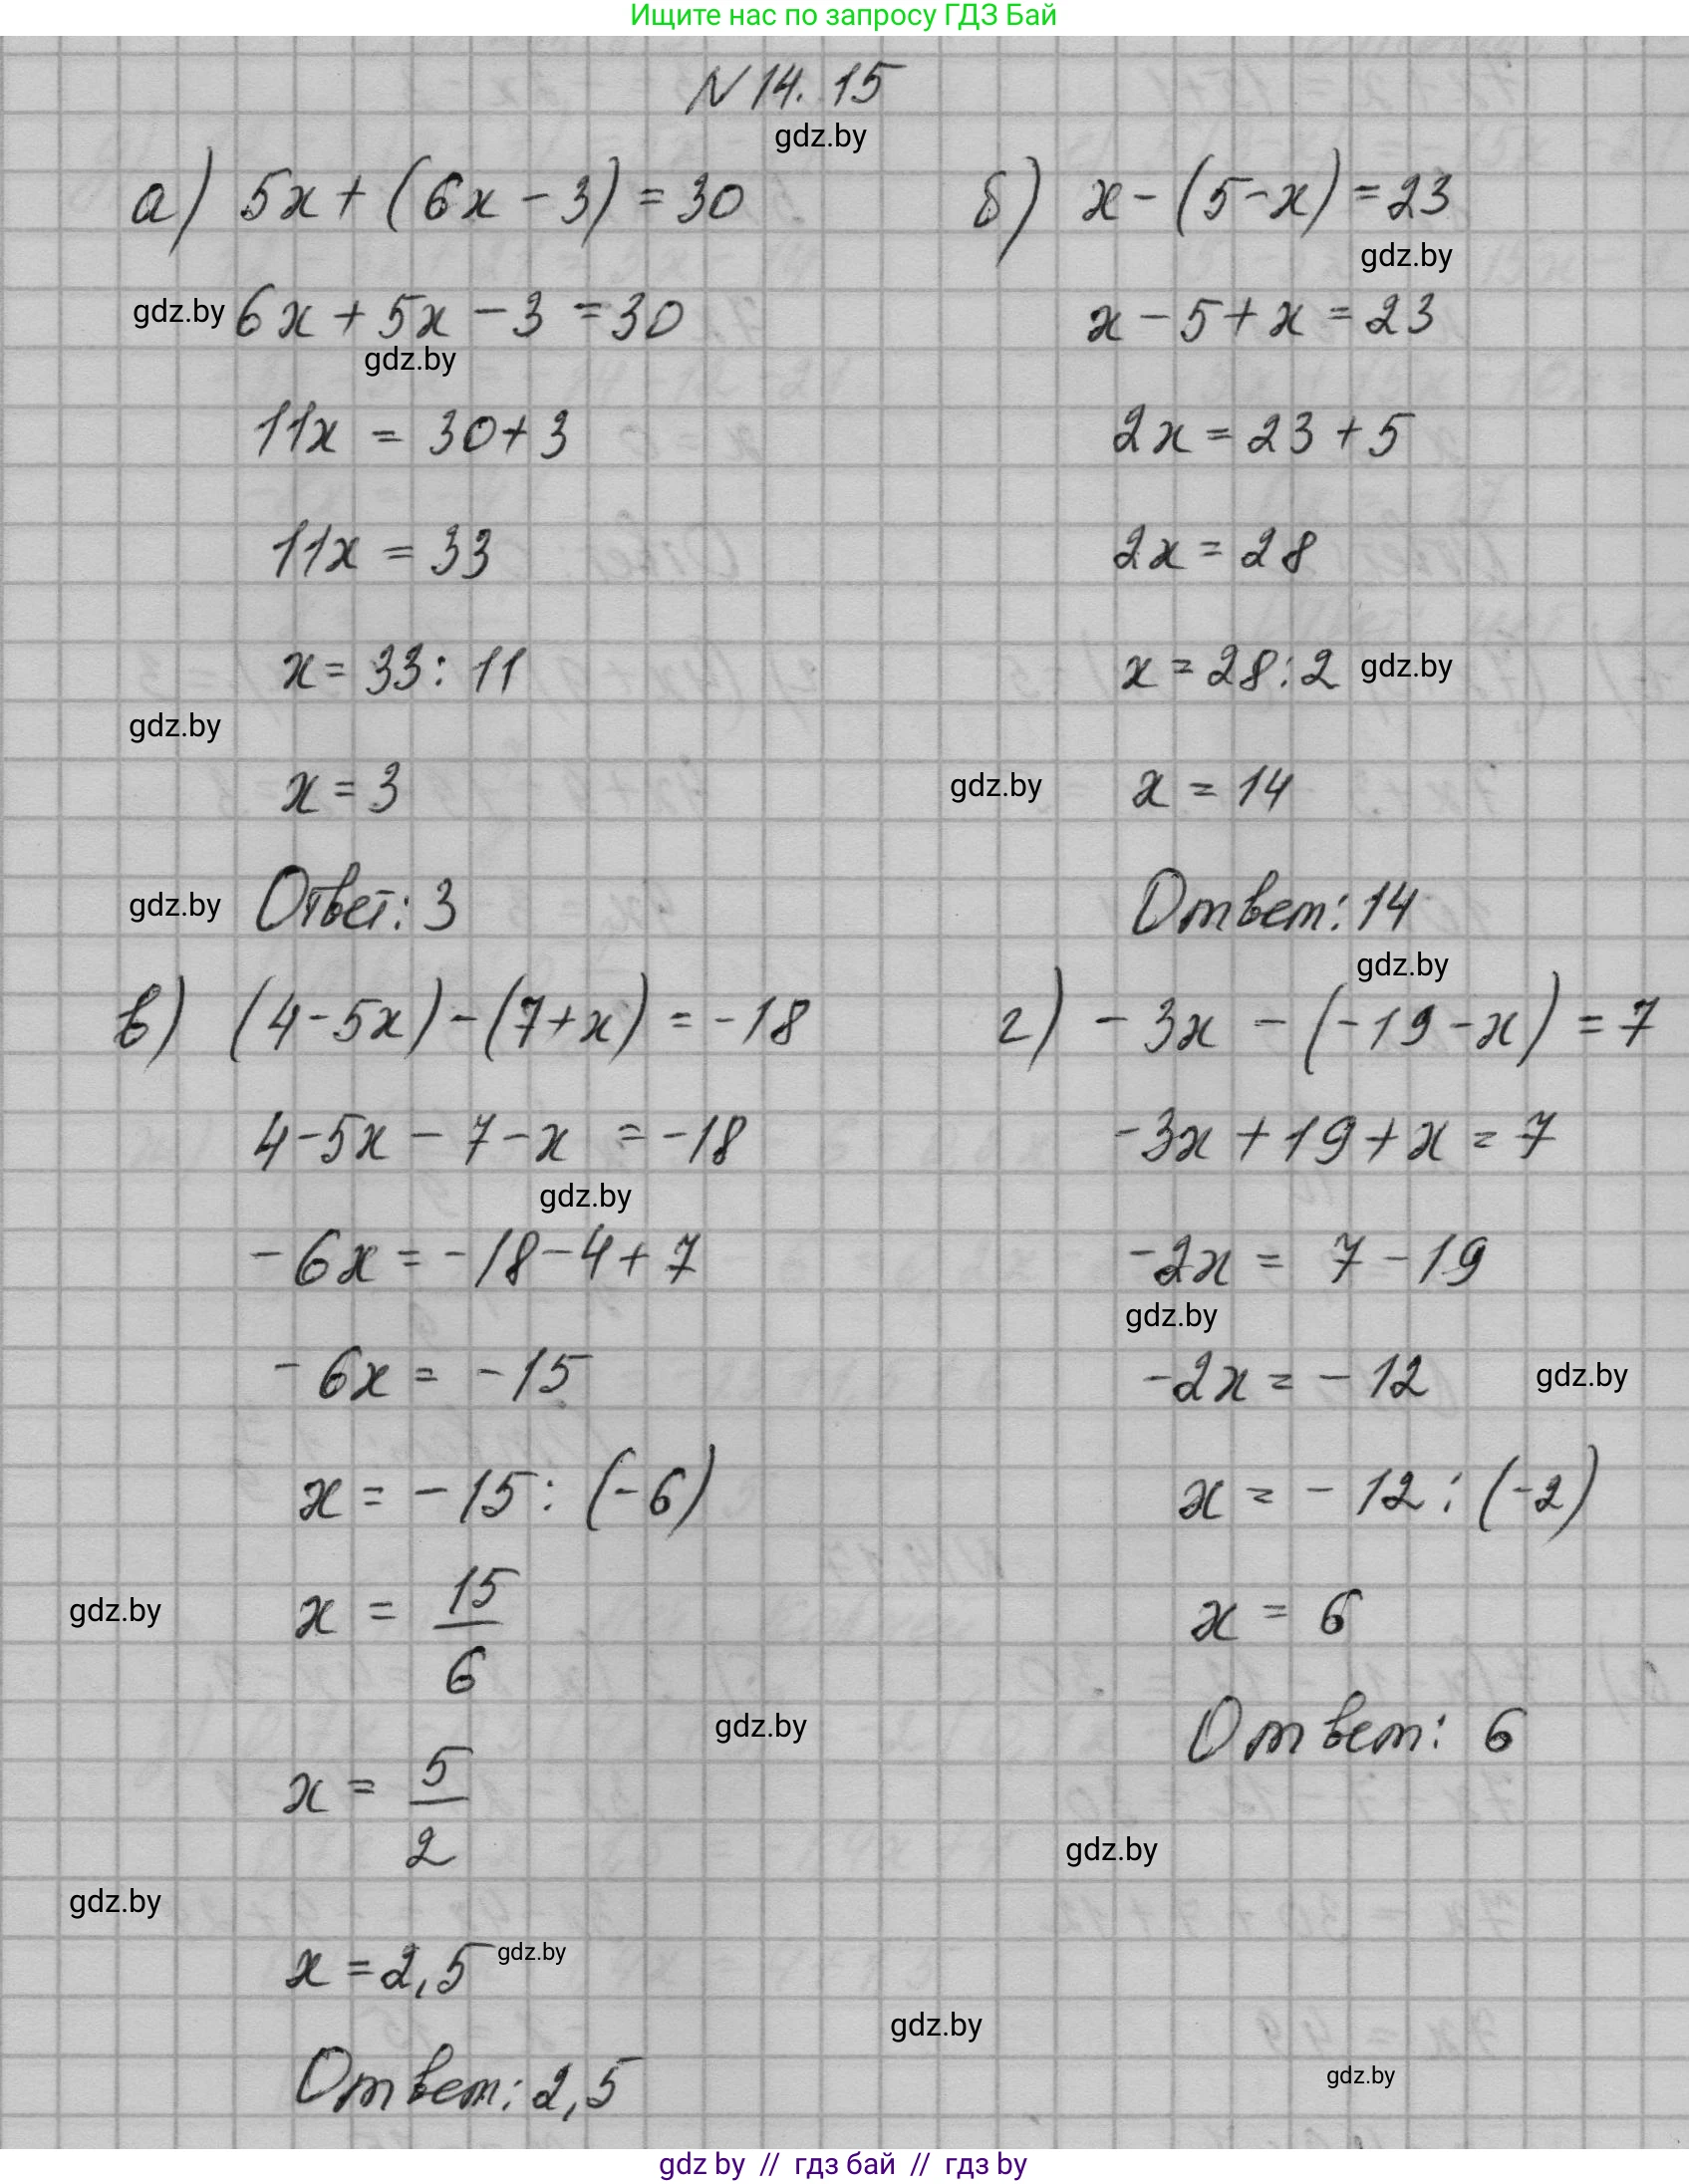 Ищите нас по запросу ГДЗ Бай
N 14. 15
gdz.by
а) 5x + (6x - 3) = 30
gdz.by 6x + 5x - 3 = 30
gdz.by
11x = 30 + 3
11x = 33
x = 33 : 11
gdz.by
x = 3
gdz.by Ответ: 3
б) x - (5 - x) = 23
gdz.by
x - 5 + x = 23
2x = 23 + 5
2x = 28
x = 28 : 2 gdz.by
gdz.by x = 14
Ответ: 14
gdz.by
в) (4 - 5x) - (7 + x) = -18
4 - 5x - 7 - x = -18
gdz.by
-6x = -18 - 4 + 7
-6x = -15
x = -15 : (-6)
gdz.by x = 15/6
gdz.by
x = 5/2
gdz.by
x = 2,5 gdz.by
Ответ: 2,5
г) -3x - (-19 - x) = 7
-3x + 19 + x = 7
-2x = 7 - 19
gdz.by
-2x = -12 gdz.by
x = -12 : (-2)
x = 6
Ответ: 6
gdz.by
gdz.by
gdz.by
gdz by // гдз бай // гдз by